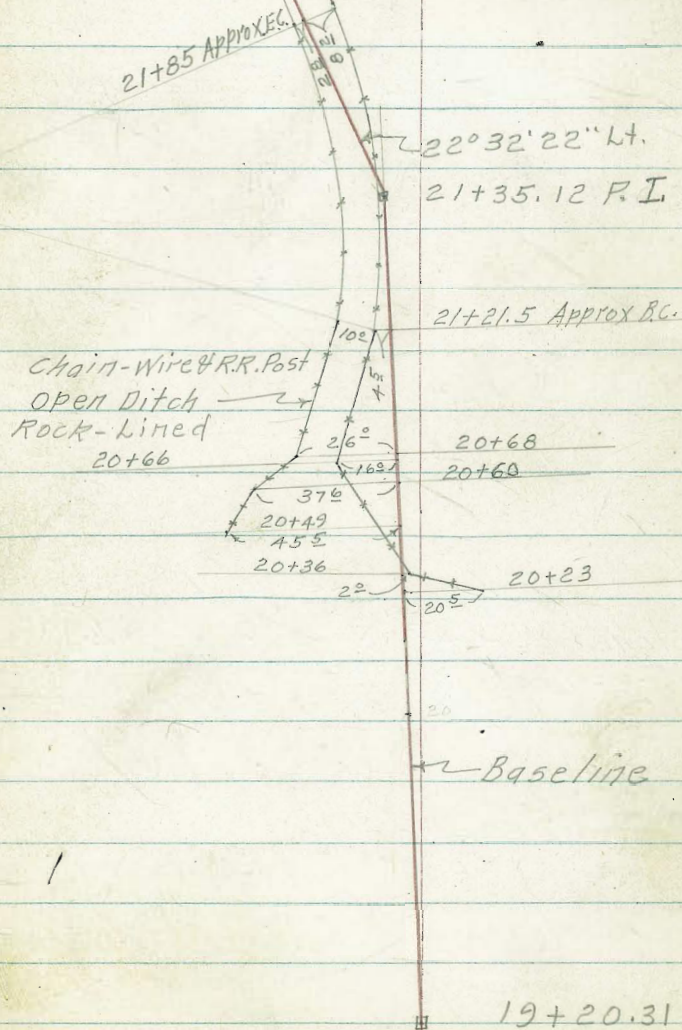 21+85 Approx E.C.
8 2
22°32'22" Lt.
21+35.12 P.I.
21+21.5 Approx B.C.
10 0
4 5
Chain-Wire & R.R. Post
Open Ditch
Rock-Lined
26 0
20+68
20+66
16 0
20+60
37 6
20+49
45 5
20+36
20+23
2 0
20 5
20
Baseline
19+20.31